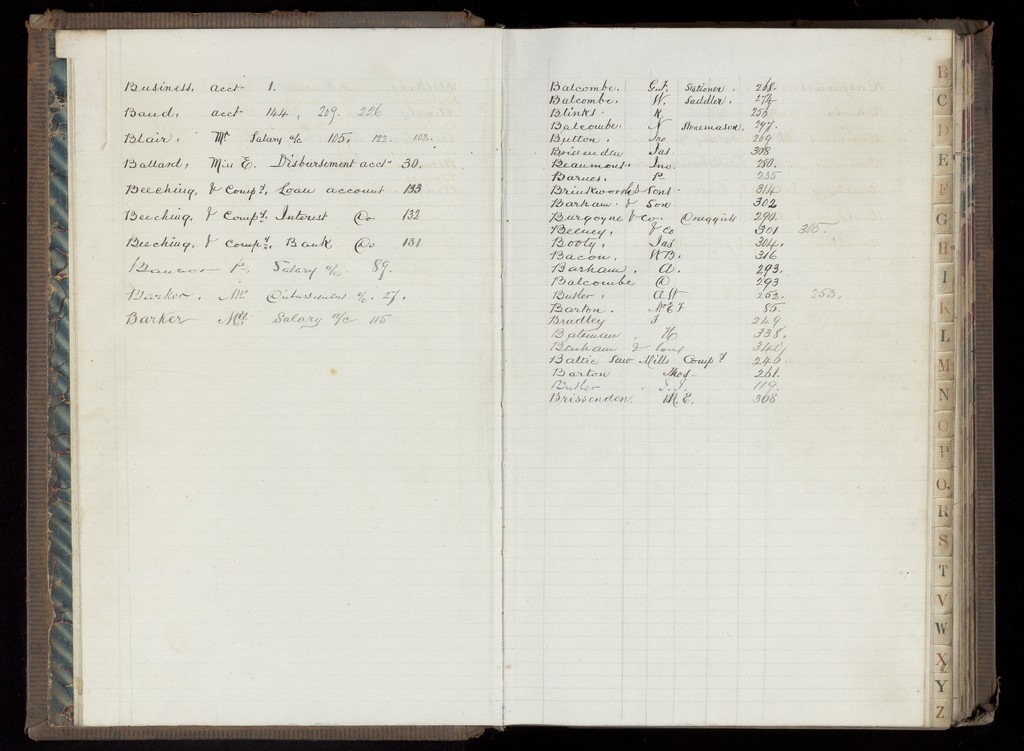 Business, acct 1.
Band, acct 144, 209. 226
Blair, Mr Salary a/c 105. 122. 103.
Ballard, Miss E. Disbursement acct 30.
Beeching, & Compy. Loan account 133
Beeching, & Compy. Interest Do 132
Beeching, & Compy. Bank Do 131
P. Salary a/c 89.
Barker, Mr Disbursement a/c. 27.
Barker Mr Salary a/c 115
Balcombe. G.F. Stationer. 268.
Balcombe. W. Saddler. 274
Blinks. R. 256
Balcombe. N Stonemason. 297.
Button. Jno 269
Brissenden Jas 308
Beaumont Jno. 280.
Barnes. P. 235
Brinkworth & Sons. 314
Barham. & Son. 302
Burgoyne & Co. Druggists 290.
Beeney, & Co 301 305.
Booty, Jas 304.
Bacon, W.B. 316
Barham. A. 293.
Balcombe D 293
Butler, Alf 252. 253.
Barton. M.E.F 85.
Bradley J 249
Bateman, H 338.
Benham & Sons 340
Baltic Saw Mills Compy 246.
Barton Thos. 261.
Butler 119.
Brissenden. M.E. 368
B
C
D
E
F
G
H
I
K
L
M
N
O
P
Q.
R
S
T
V
W
X
Y
Z